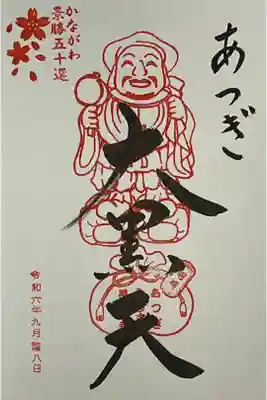 あつぎ
大黒天
かながわ
景勝五十選
令和六年九月八日
あつぎ